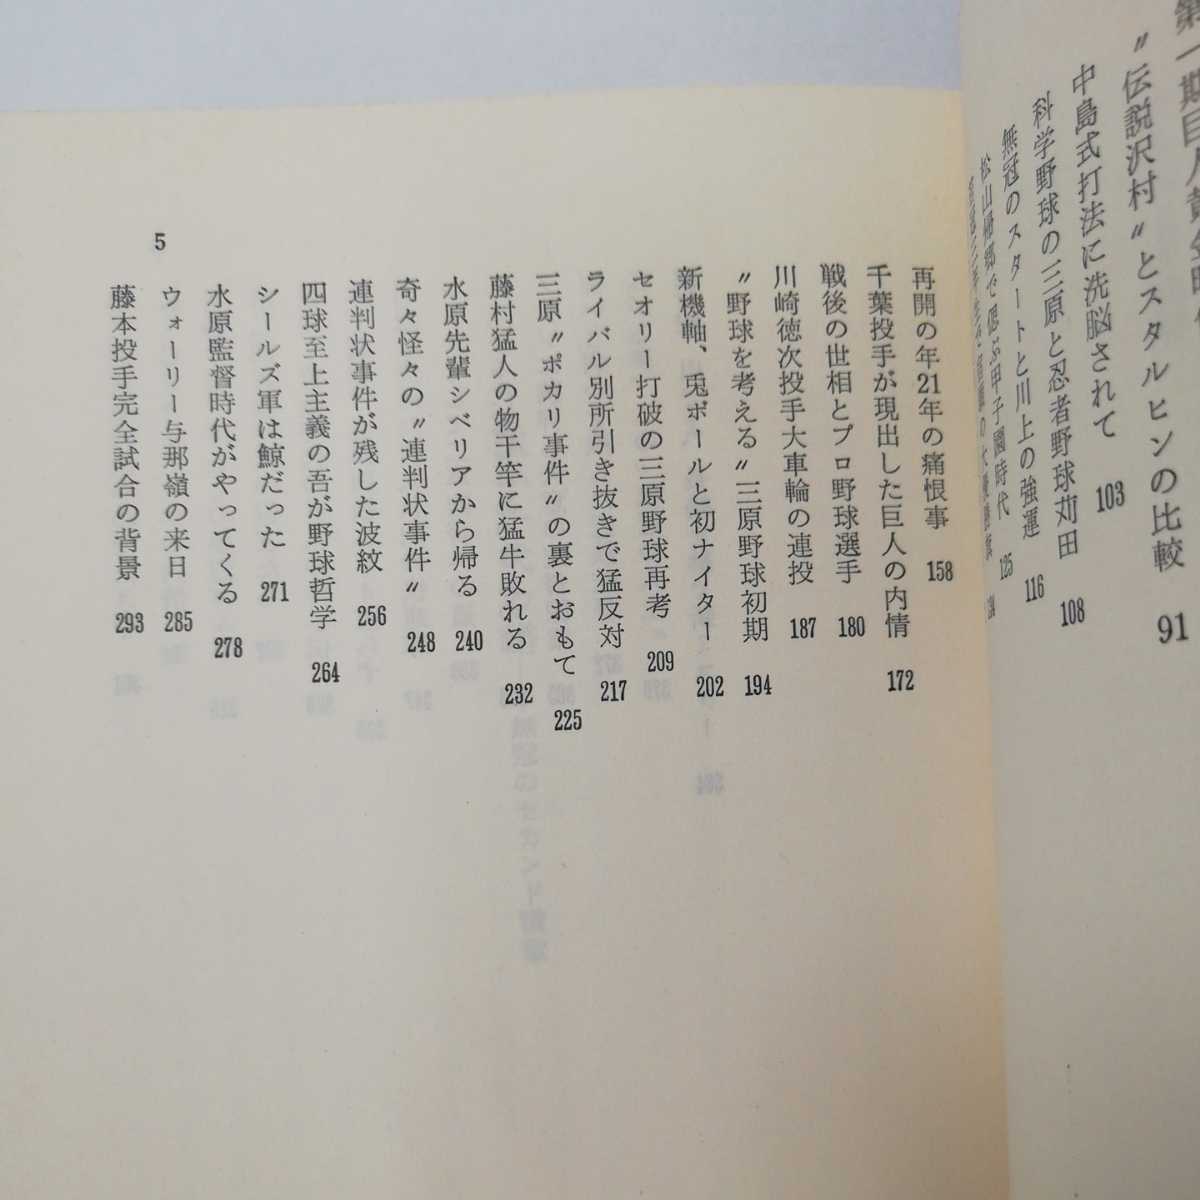 “伝説沢村”とスタルヒンの比較 91
中島式打法に洗脳されて 103
科学野球の三原と忍者野球苅田 108
無冠のスタートと川上の強運 116
松山帰郷で偲ぶ甲子園時代 125
再開の年21年の痛恨事 158
千葉投手が現出した巨人の内情 172
戦後の世相とプロ野球選手 180
川崎徳次投手大車輪の連投 187
“野球を考える”三原野球初期 194
新機軸、兎ボールと初ナイター 202
セオリー打破の三原野球再考 209
ライバル別所引き抜きで猛反対 217
三原“ポカリ事件”の裏とおもて 225
藤村猛人の物干竿に猛牛敗れる 232
水原先輩シベリアから帰る 240
奇々怪々の“連判状事件” 248
連判状事件が残した波紋 256
四球至上主義の吾が野球哲学 264
シールズ軍は鯨だった 271
水原監督時代がやってくる 278
ウォーリー与那嶺の来日 285
藤本投手完全試合の背景 293
5